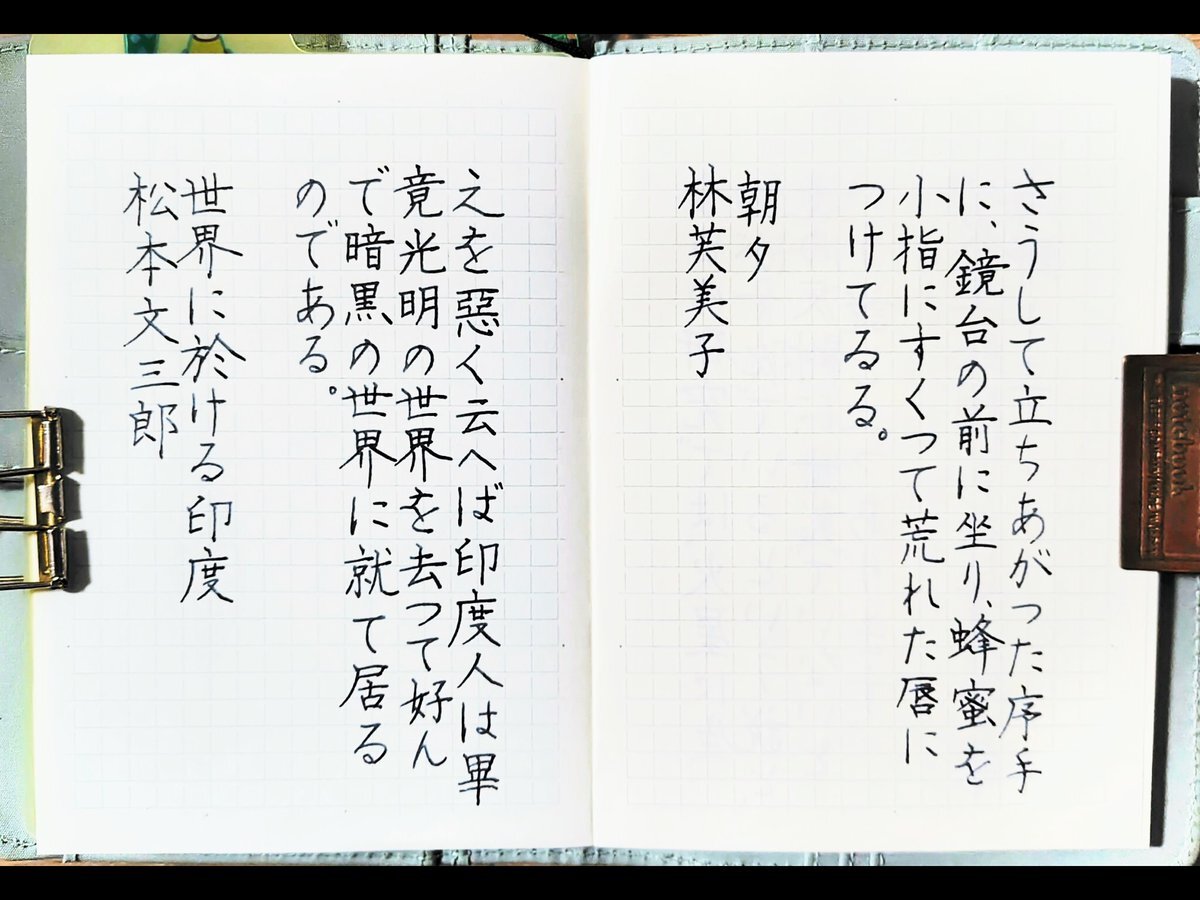 さうして立ちあがつた序手
に、鏡台の前に坐り、蜂蜜を
小指にすくつて荒れた唇に
つけてるる。
朝夕
林芙美子
えを惡く云へば印度人は畢
竟光明の世界を去つて好ん
で暗黒の世界に就て居る
のである。
世界に於ける印度
松本文三郎
notebook